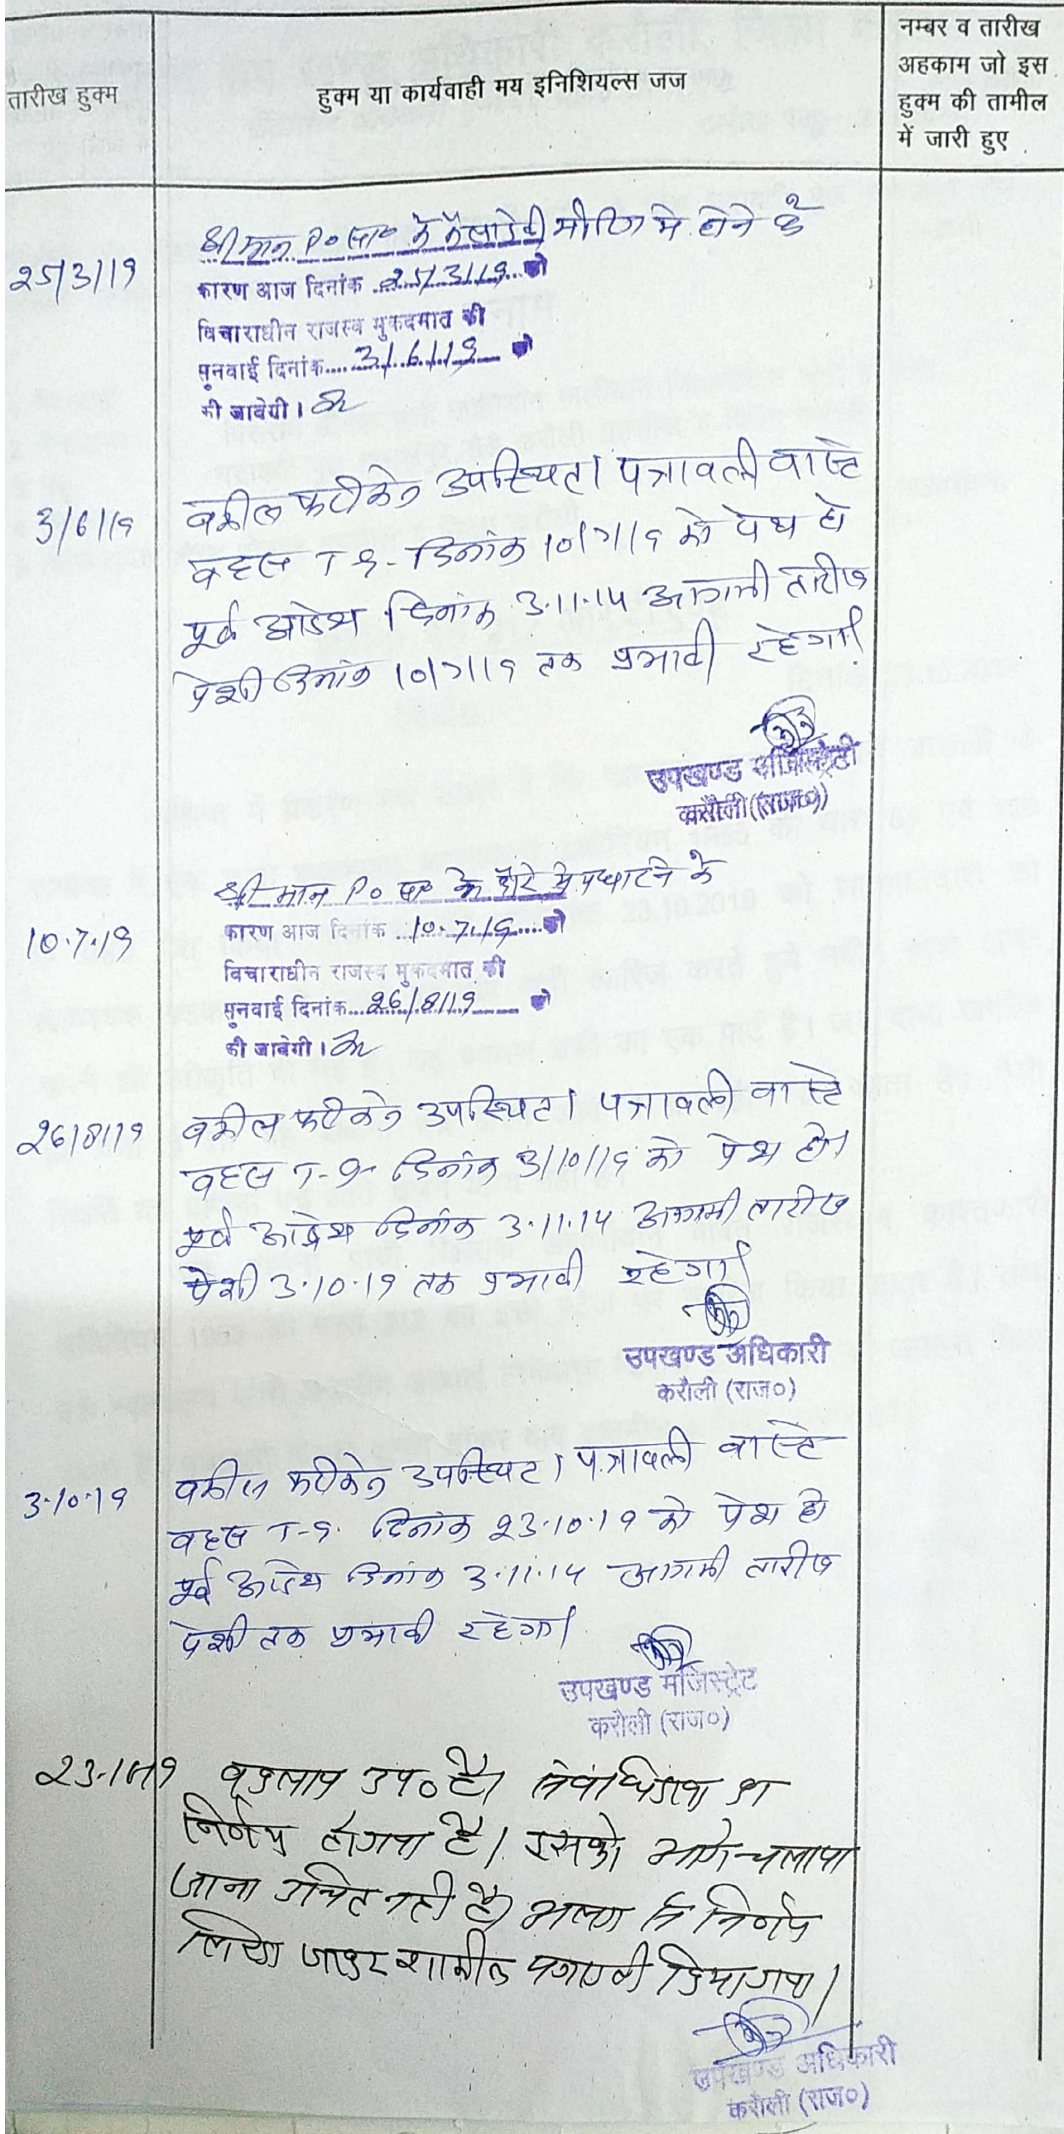 तारीख हुक्म
हुक्म या कार्यवाही मय इनिशियल्स जज
नम्बर व तारीख
अहकाम जो इस
हुक्म की तामील
में जारी हुए
25/3/19
श्रीमान P० सा० के कैलादेवी मीटिंग मे होने के
कारण आज दिनांक 25/3/19 को
विचाराधीन राजस्व मुकदमात की
सुनवाई दिनांक 3/6/19 को
की जावेगी।
3/6/19
वकील फरीकेन उपस्थित। पत्रावली वास्ते
बहस T.9. दिनांक 10/7/19 को पेश हो
पूर्व आदेश दिनांक 3.11.14 आगामी तारीख
पेशी दिनांक 10/7/19 तक प्रभावी रहेगा।
उपखण्ड मजिस्ट्रेट
करौली (राज०)
10.7.19
श्रीमान P० सा० के दौरे मे पधारने के
कारण आज दिनांक 10.7.19 को
विचाराधीन राजस्व मुकदमात की
सुनवाई दिनांक 26/8/19 को
की जावेगी।
26/8/19
वकील फरीकेन उपस्थित। पत्रावली वास्ते
बहस T-9- दिनांक 3/10/19 को पेश हो।
पूर्व आदेश दिनांक 3.11.14 आगामी तारीख
पेशी 3.10.19 तक प्रभावी रहेगा।
उपखण्ड अधिकारी
करौली (राज०)
3.10.19
वकील फरीकेन उपस्थित। पत्रावली वास्ते
बहस T-9. दिनांक 23.10.19 को पेश हो
पूर्व आदेश दिनांक 3.11.14 आगामी तारीख
पेशी तक प्रभावी रहेगा।
उपखण्ड मजिस्ट्रेट
करौली (राज०)
23-10-19
उप० है। का
निर्णय हो गया है। इसको आगे चलाया
जाना उचित नही है। निर्णय
लिखा जाकर शामील पत्रावली किया गया।
उपखण्ड अधिकारी
करौली (राज०)